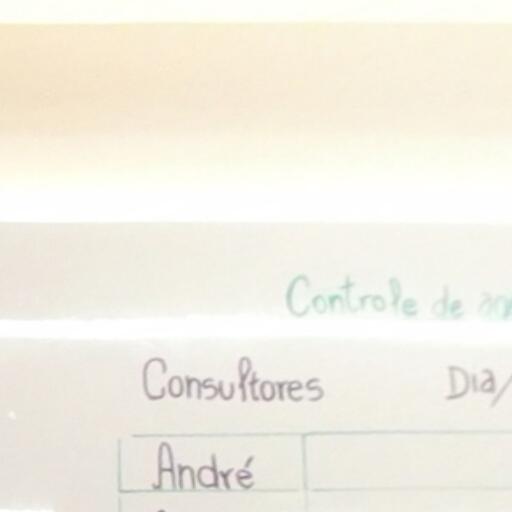 Controle de
Consultores Dia/
André